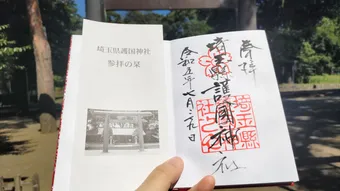 埼玉県護国神社
参拝の栞
奉拝
埼玉縣護國神社
令和五年七月二十九日
埼玉縣
護國神
社之印